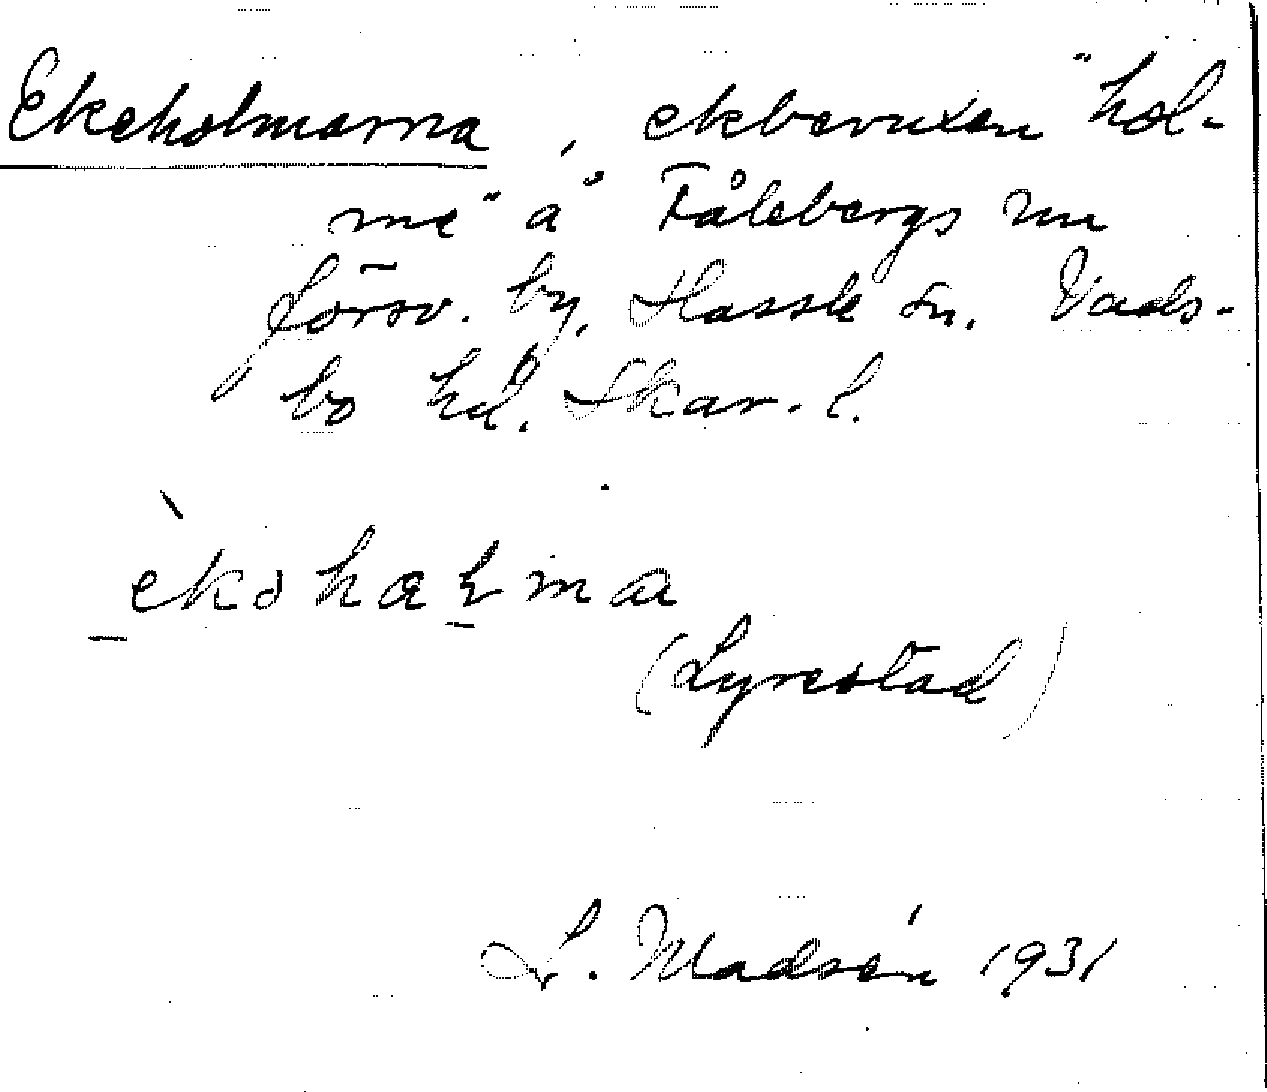 Ekeholmarna, ekbevuxen "hol-
me" å Fålebergs nu
försv. by, Hassle sn. Vads-
bo hd. Skar. l.
(Lyrestad)
L. Madsén 1931